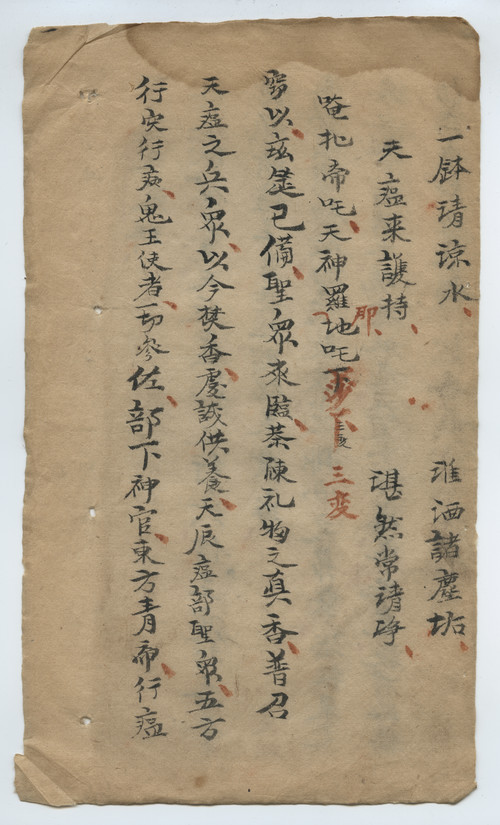 一鉢清涼水 琟洒諸塵垢
天瘟来護持 湛然常清净
唵扎帝吒天神羅地吒 三变
窃以玆筵已備聖眾來臨恭陳礼物之真香普召
天瘟之兵眾以今焚香虔誠供養天辰瘟部聖眾五方
行灾行病鬼王使者一切参佐部下神官東方青帝行瘟